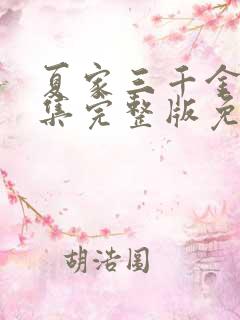 夏家三千金
集完整版免
胡浩圆